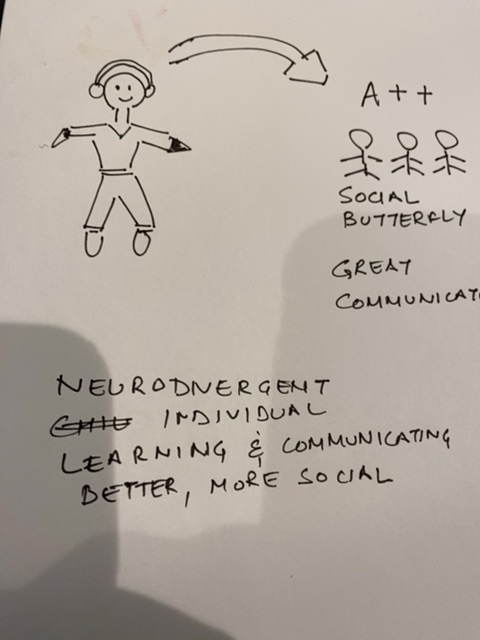 A++
SOCIAL
BUTTERFLY
GREAT
COMMUNICAT
NEURODIVERGENT
INDIVIDUAL
LEARNING & COMMUNICATING
BETTER, MORE SOCIAL